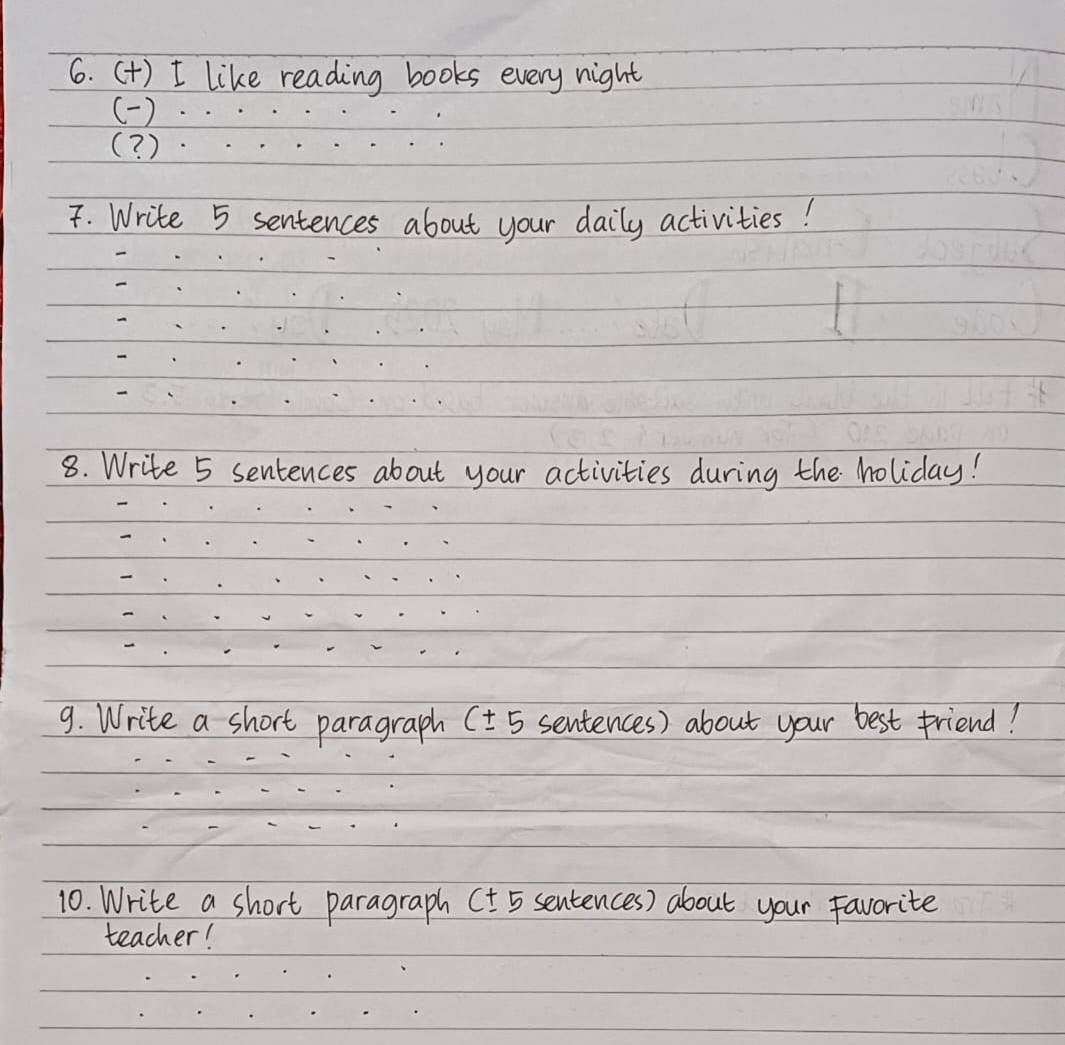 6. (+) I like reading books every night
(-) . . . . . . . .
(?) . . . . . . . . .
7. Write 5 sentences about your daily activities!
- . . . . .
- . . . . . .
- . . . . . .
- . . . . . .
- . . . . . .
8. Write 5 sentences about your activities during the holiday!
- . . . . . . .
- . . . . . . .
- . . . . . . . .
- . . . . . . . .
- . . . . . . .
9. Write a short paragraph (± 5 sentences) about your best friend!
. . . . . . .
. . . . . . .
. . . . . .
10. Write a short paragraph (± 5 sentences) about your Favorite
teacher!
. . . . . .
. . . . . .